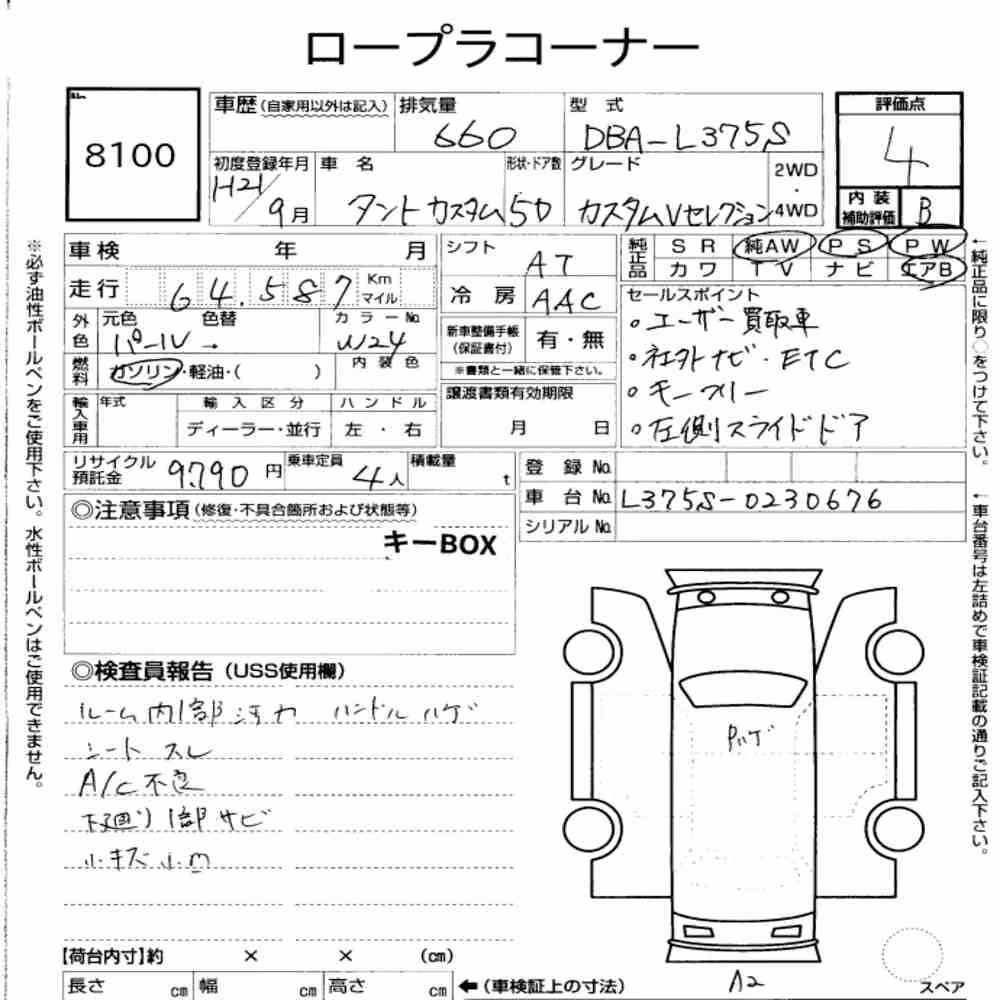 ロープラコーナー
8100
車歴（自家用以外は記入） 排気量 660 型式 DBA-L375S
評価点 4
初度登録年月 H21/9月 車名 タントカスタム 形状・ドア数 5D グレード カスタムVセレクション 2WD・4WD
内装補助評価 B
車検 年 月
シフト AT
純正品 SR 純AW PS PW
カワ TV ナビ エアB
走行 64,587 Km マイル
冷房 AAC
セールスポイント
。ユーザー買取車
。社外ナビ・ETC
。キーフリー
。左側スライドドア
外色 元色 パール→ 色替 カラーNo. W24
新車整備手帳（保証書付） 有・無
※書類と一緒に保管下さい。
燃料 ガソリン・軽油・( ) 内装色
輸入車用 年式 輸入区分 ハンドル
ディーラー・並行 左・右
譲渡書類有効期限
月 日
リサイクル預託金 9,790円 乗車定員 4人 積載量 t
登録No.
車台No. L375S-0230676
シリアルNo.
◎注意事項（修復・不具合箇所および状態等）
キーBOX
◎検査員報告（USS使用欄）
ルーム内1部汚れ ハンドルハゲ
シートスレ
A/C不良
下廻り1部サビ
小キズ小凹
Pハゲ
A2
スペア
【荷台内寸】約 × × (cm)
長さ cm 幅 cm 高さ cm ←（車検証上の寸法）
※必ず油性ボールペンをご使用下さい。水性ボールペンはご使用できません。
←純正品に限り○をつけて下さい。
←車台番号は左詰めで車検証記載の通りご記入下さい。